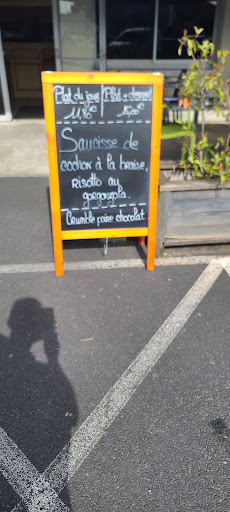 Plat du jour | Plat + dessert
11,90€ | 15,00€
Saucisse de
cochon à la braise,
risotto au
gorgonzola.
Crumble poire chocolat